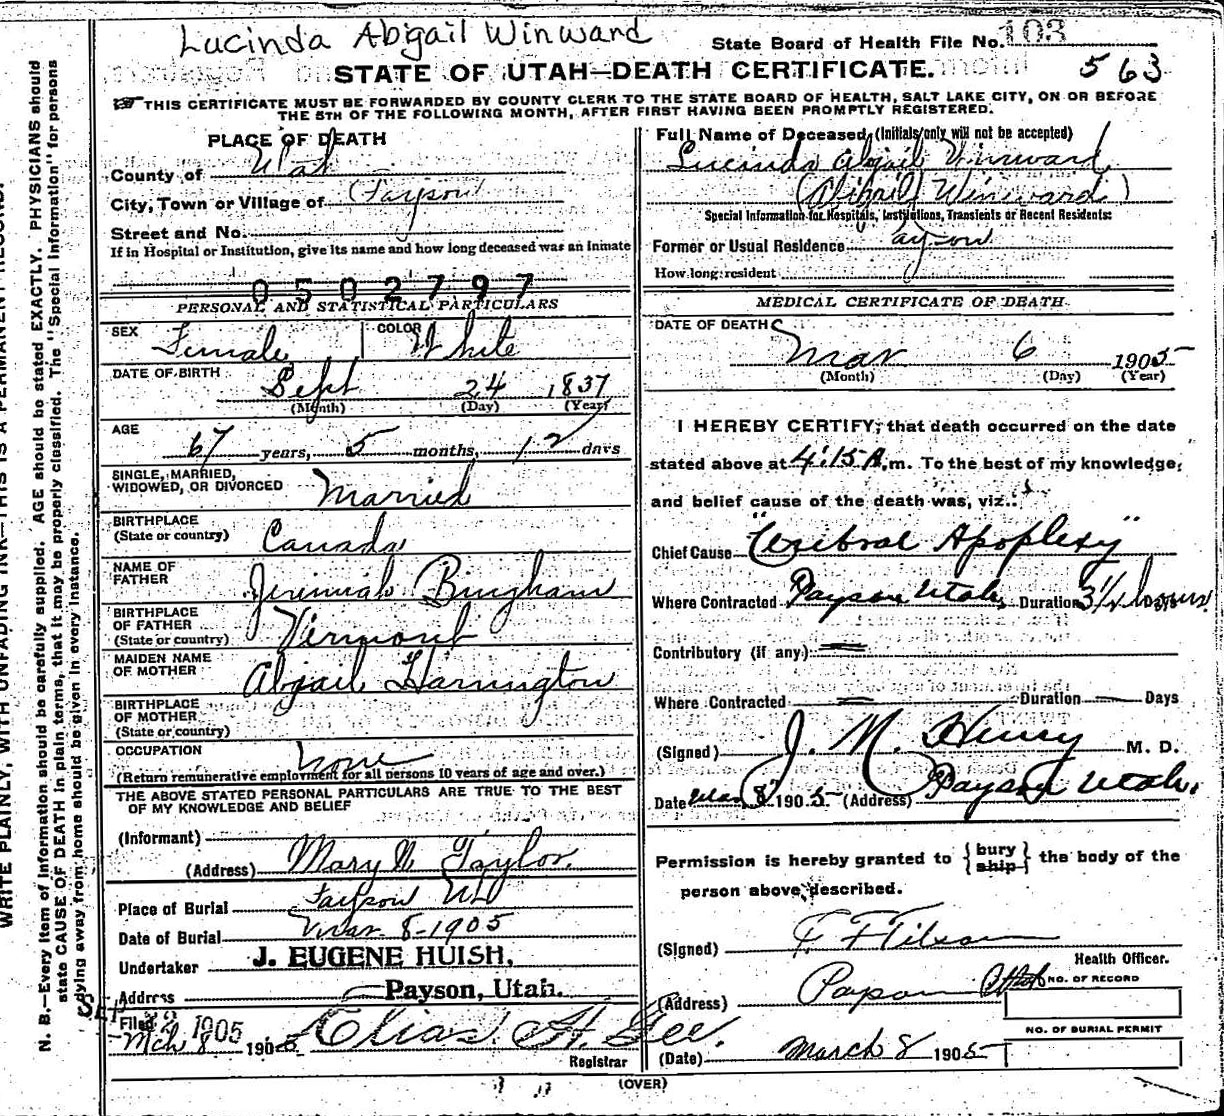 Lucinda Abigail Winward
State Board of Health File No. 103
STATE OF UTAH—DEATH CERTIFICATE.
563
THIS CERTIFICATE MUST BE FORWARDED BY COUNTY CLERK TO THE STATE BOARD OF HEALTH, SALT LAKE CITY, ON OR BEFORE
THE 5TH OF THE FOLLOWING MONTH, AFTER FIRST HAVING BEEN PROMPTLY REGISTERED.
PLACE OF DEATH
County of Utah
City, Town or Village of (Payson)
Street and No.
If in Hospital or Institution, give its name and how long deceased was an inmate
0502797
PERSONAL AND STATISTICAL PARTICULARS
SEX Female COLOR White
DATE OF BIRTH Sept 24 1837
(Month) (Day) (Year)
AGE 67 years, 5 months, 12 days
SINGLE, MARRIED,
WIDOWED, OR DIVORCED Married
BIRTHPLACE
(State or country) Canada
NAME OF
FATHER Jerimiah Bingham
BIRTHPLACE
OF FATHER
(State or country) Vermont
MAIDEN NAME
OF MOTHER Abigail Harrington
BIRTHPLACE
OF MOTHER
(State or country)
OCCUPATION None
(Return remunerative employment for all persons 10 years of age and over.)
THE ABOVE STATED PERSONAL PARTICULARS ARE TRUE TO THE BEST
OF MY KNOWLEDGE AND BELIEF
(Informant)
(Address) Mary Taylor.
Place of Burial Payson
Date of Burial Mar. 8-1905
Undertaker J. EUGENE HUISH,
Address Payson, Utah.
Filed 1905
Mch 8 190 Elias H. Gee.
Registrar
Full Name of Deceased, (Initials only will not be accepted)
Lucinda Abigail Winward
(Abigail Winward)
Special Information for Hospitals, Institutions, Transients or Recent Residents:
Former or Usual Residence Payson
How long resident
MEDICAL CERTIFICATE OF DEATH
DATE OF DEATH
Mar 6 1905
(Month) (Day) (Year)
I HEREBY CERTIFY, that death occurred on the date
stated above at 4:15 A.m. To the best of my knowledge,
and belief cause of the death was, viz.:
Chief Cause "Ceribral Apoplexy"
Where Contracted Payson Utah, Duration 3½ hours Days
Contributory (if any)
Where Contracted Duration Days
(Signed) J. M. Henry M. D.
Date Mar 8 1905 (Address) Payson Utah.
Permission is hereby granted to {bury
ship} the body of the
person above described.
(Signed)
Health Officer.
(Address) Payson Utah NO. OF RECORD
NO. OF BURIAL PERMIT
(Date) March 8 1905
(OVER)
WRITE PLAINLY, WITH UNFADING INK—THIS IS A PERMANENT RECORD.
N. B.—Every item of information should be carefully supplied. AGE should be stated EXACTLY. PHYSICIANS should
state CAUSE OF DEATH in plain terms, that it may be properly classified. The "Special Information" for persons
dying away from home should be given in every instance.